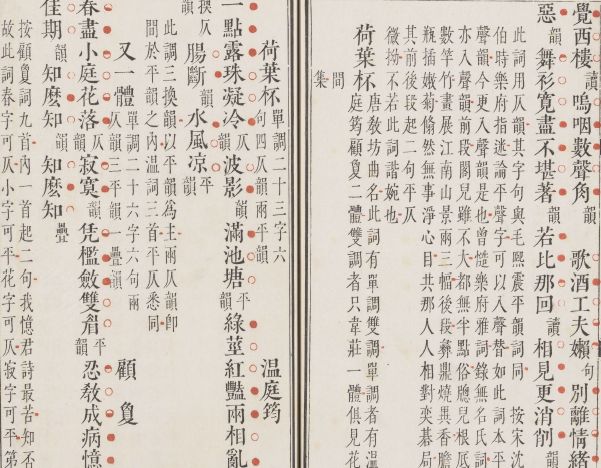 覺西樓讀嗚咽數聲角韻　歌酒工夫嬾句別離情緒
惡韻舞衫寬盡不堪著韻若比那回讀相見更消削韻
此詞用仄韻其字句與毛熙震平韻詞同　按宋沈
伯時樂府指迷論平聲字可以入聲替如此詞本平
聲韻今更入聲韻是也曾慥樂府雅詞錄無名氏詞
亦入聲韻前段閣兒雖不大都無半點俗牕兒根底
數竿竹畫展江南山景兩三幅後段彝鼎燒異香膽
瓶插嫩菊翛然無事淨心目共那人人相對奕碁局
其前後段起二句平仄
微拗不若此詞諧婉也
荷葉杯　唐敎坊曲名此詞有單調雙調單調者有溫
庭筠顧敻二體雙調者只韋莊一體俱見花
間集
荷葉杯　單調二十三字六
句四仄韻兩平韻　溫庭筠
一點露珠凝冷仄韻波影韻滿池塘平韻綠莖紅豔兩相亂
換仄韻腸斷韻水風凉平韻
此調三換韻以平韻為主兩仄韻卽
間於平韻之內溫詞三首平仄悉同
又一體　單調二十六字六句兩
仄韻三平韻一疊韻　顧敻
春盡小庭花落仄韻寂寞韻凭檻斂雙眉平韻忍敎成病憶
佳期韻知麽知韻知麽知疊
按顧敻詞九首內一首起二句我憶君詩最苦知否
故此詞春字可仄小字可平花字可仄寂字可平第